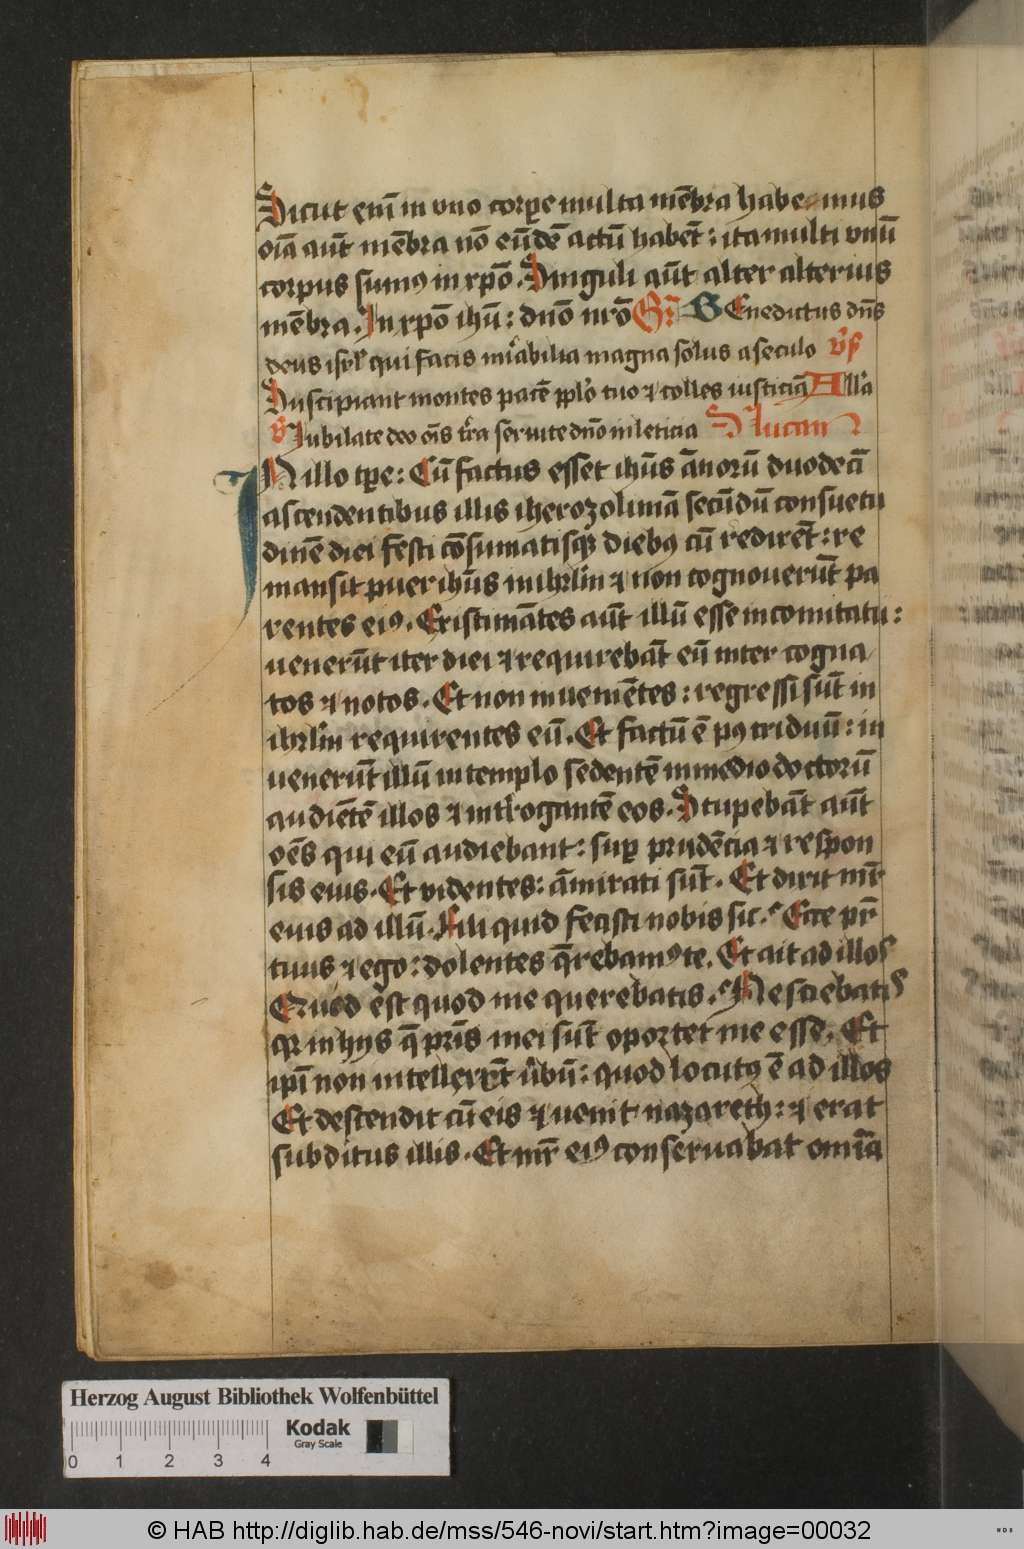 Sicut eni᷇ in vno corpe multa me᷇bra habemus
oi᷇a au᷇t me᷇bra no᷇ eu᷇de᷇ actu᷇ habe᷇t : ita multi vnu᷇
corpus sumꝰ in xpo᷇ . Singuli au᷇t alter alterius
me᷇bra . In xpo᷇ ihu᷇ : dn᷇o nr᷇o Gr᷇ BEnedictus dn᷇s
deus isrl᷇ qui facis mi᷇abilia magna solus a seculo v᷇s
Suscipiant montes pace᷇ pplo᷇ tuo ⁊ colles iusticia᷇ All᷇a
v᷇ Iubilate deo oi᷇s t᷇ra seruite dn᷇o in leticia S lucam
IN illo tpe᷇ : Cu᷇ factus esset ihu᷇s a᷇noru᷇ duodeci᷇
ascendentibus illis iherozolima᷇ secu᷇du᷇ consuetu
dine᷇ diei festi co᷇sumatisqꝫ diebꝰ cu᷇ redire᷇t : re
mansit puer ihu᷇s in ihrl᷇m ⁊ non cognoueru᷇t pa
rentes eiꝰ . Existima᷇tes au᷇t illu᷇ esse in comitatu :
uener᷇ut iter diei ⁊ requireba᷇t eu᷇ inter cogna
tos ⁊ notos . Et non inuenie᷇tes : regressi su᷇t in
ihrl᷇m requirentes eu᷇ . Et factu᷇ e᷇ pꝰ triduu᷇ : in
ueneru᷇t illu᷇ in templo sedente᷇ in medio doctoru᷇
audie᷇te᷇ illos ⁊ int᷇rogante᷇ eos . Stupeba᷇t au᷇t
oe᷇s qui eu᷇ audiebant : suꝑ prude᷇cia ⁊ respon
sis eius . Et videntes : a᷇mirati su᷇t . Et dixit mr᷇
eius ad illu᷇ . Fili quid fecisti nobis sic . Ecce pr᷇
tuus ⁊ ego : dolentes q᷇rebamꝰ te . Et ait ad illos
Quid est quod me querebatis . Nesciebatis
qꝛ in hys q᷇ pri᷇s mei su᷇t oportet me esse . Et
ipi᷇ non intellexe᷇rt u᷇bu᷇ : quod locutꝰ e᷇ ad illos
Et descendit cu᷇ eis ⁊ uenit nazareth : ⁊ erat
subditus illis . Et mr᷇ eiꝰ conseruabat omi᷇a
Herzog August Bibliothek Wolfenbüttel
Kodak
Gray Scale
0 1 2 3 4
© HAB http://diglib.hab.de/mss/546-novi/start.htm?image=00032